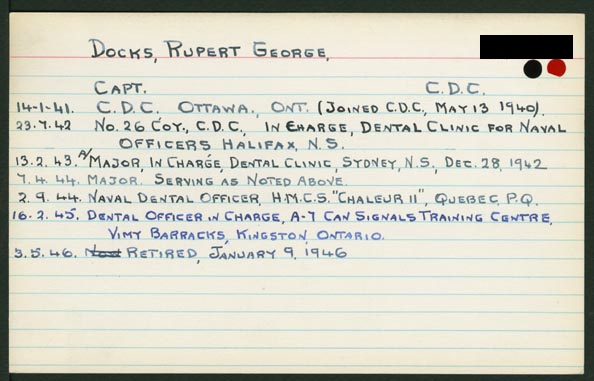 DOCKS, RUPERT GEORGE,
CAPT. C.D.C.
14-1-41. C.D.C. OTTAWA, ONT. (JOINED C.D.C., MAY 13 1940).
23.7.42 NO. 26 COY., C.D.C., IN CHARGE, DENTAL CLINIC FOR NAVAL
OFFICERS HALIFAX, N.S.
13.2.43. A/MAJOR, IN CHARGE, DENTAL CLINIC, SYDNEY, N.S., DEC. 28, 1942
7.4.44. MAJOR. SERVING AS NOTED ABOVE.
2.9.44. NAVAL DENTAL OFFICER, H.M.C.S. "CHALEUR II", QUEBEC, P.Q.
16.2.45. DENTAL OFFICER IN CHARGE, A-7 CAN SIGNALS TRAINING CENTRE,
VIMY BARRACKS, KINGSTON, ONTARIO.
3.5.46. RETIRED, JANUARY 9, 1946